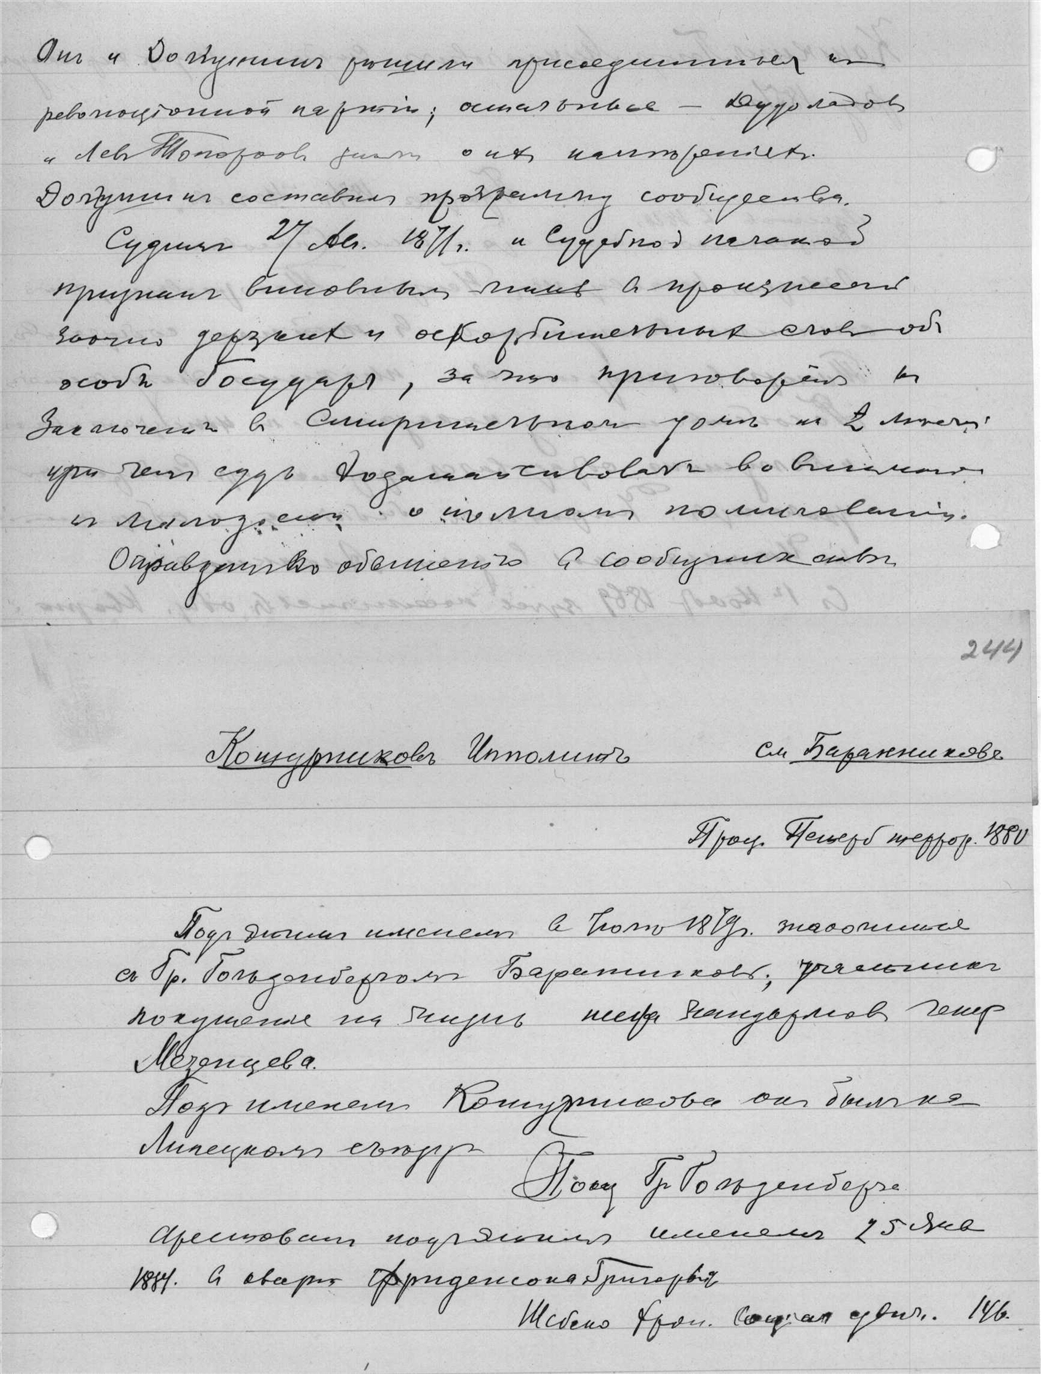 Онъ и Долгушинъ рѣшили присоединиться къ
революціонной партіи; остальные — Дудоладовъ
и Левъ Топорковъ знали о ихъ намѣреніяхъ.
Долгушинъ составилъ программу сообщества.
Судился 27 Авг. 1871г. и Судебной палатой
признанъ виновнымъ лишь въ произнесеніи
заочно дерзкихъ и оскорбительныхъ словъ объ
особѣ Государя, за что приговорёнъ къ
Заключенію въ Смирительномъ домѣ на 2 мѣсяца
при чемъ судъ ходатайствовалъ во вниманіи
къ молодости о полномъ помилованіи.
Оправданъ по обвиненію въ сообществѣ
244
Кошурниковъ Ипполитъ см Баранниковъ
Проц. Петерб террор. 1880
Подъ этимъ именемъ въ Іюнѣ 1879г. знакомился
съ Гр. Гольденбергомъ Баранниковъ, участникъ
покушенія на жизнь шефа жандармовъ Генер
Мезенцева.
Подъ именемъ Кошурникова онъ былъ на
Липецкомъ съѣздѣ
Показ Гр. Гольденберга
Арестованъ подъ этимъ именемъ 25 Янв
1881. въ кварт Фриденсона Григорія
Шебеко Хрон. Соціал движ. 146.